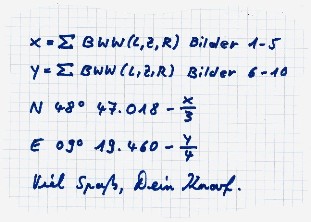 x = Σ BWW (L,Z,R) Bilder 1-5
y = Σ BWW (L,Z,R) Bilder 6-10
N 48° 47.018 - x/3
E 09° 19.460 - y/4
Viel Spaß, Dein Knauf.